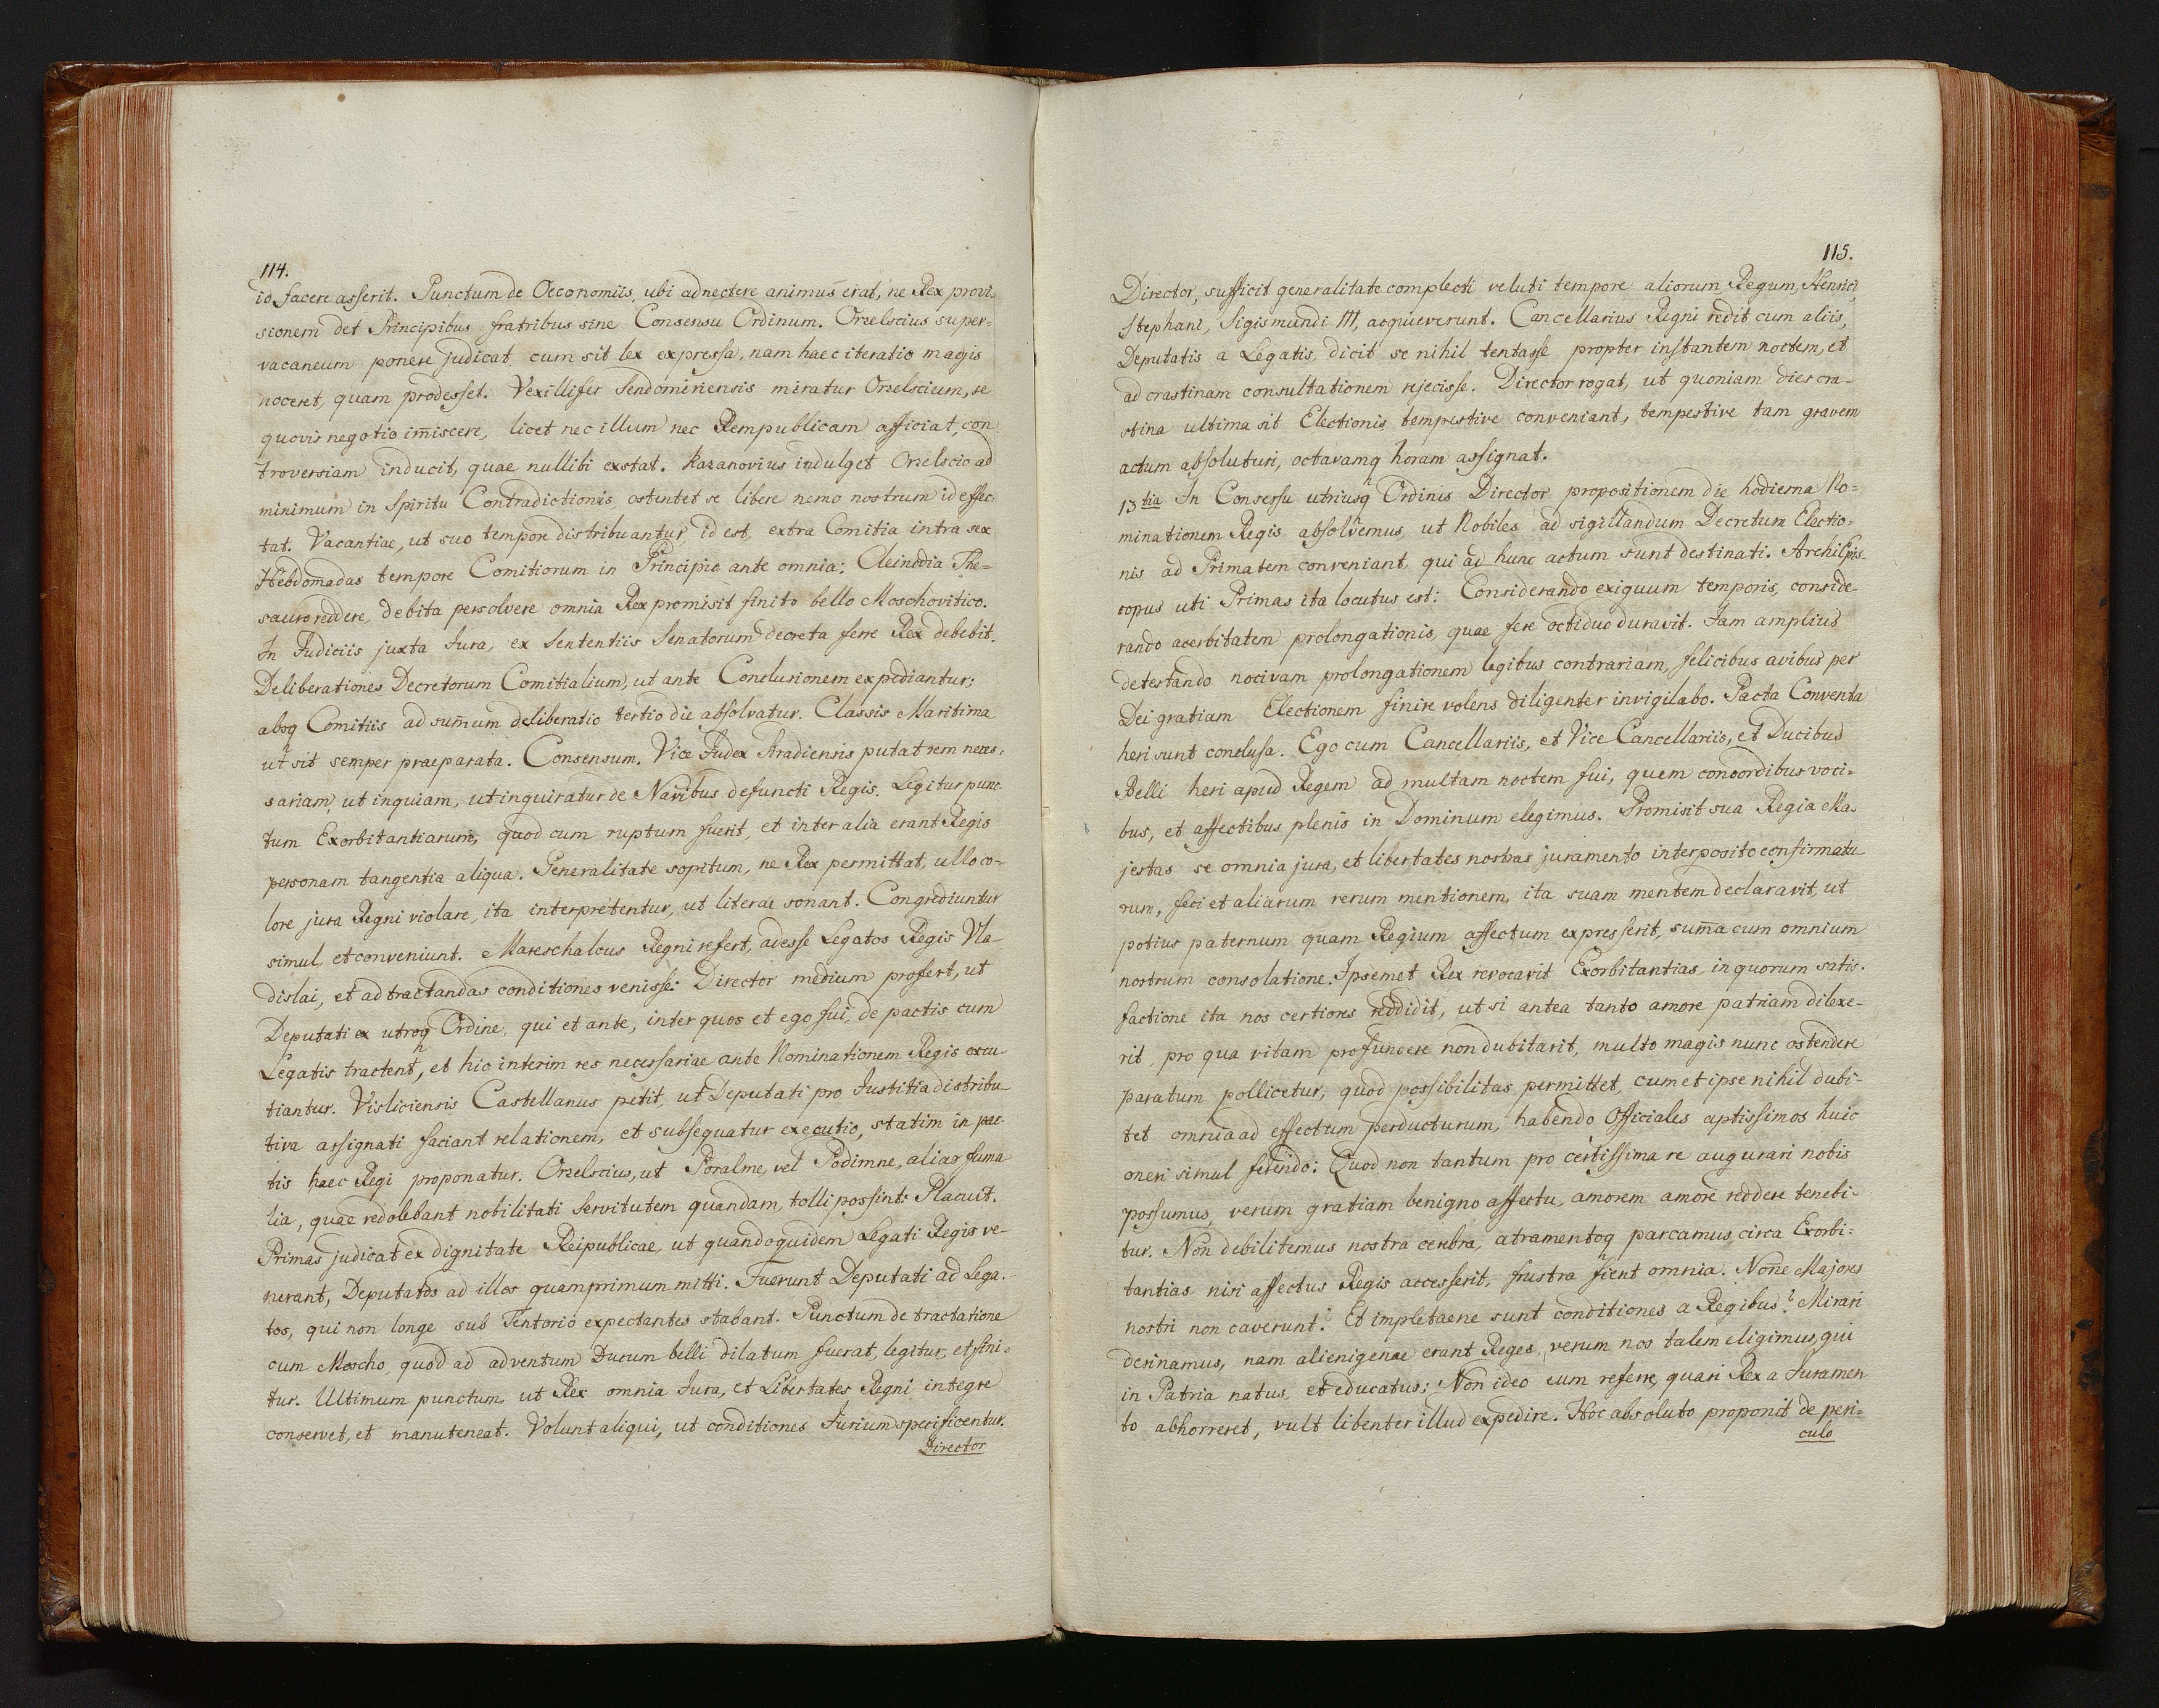 114.
id facere asserit. Punctum de Oeconomiis, ubi adnectere animus erat, ne Rex provi-
sionem det Principibus fratribus sine Consensu Ordinum. Orzelscius super-
vacaneum ponere judicat, cum sit lex expressa, nam haec iteratio magis
noceret, quam prodesset. Vexillifer Sendomiriensis miratur Orzelscium, se
quovis negotio im̄iscere, licet nec illum nec Rempublicam afficiat, con
troversiam inducit, quae nullibi exstat. Kazanovius indulget Orzelscio ad
minimum in Spiritu Contradictionis ostentet se libere nemo nostrum id effec-
tat. Vacantiae, ut suo tempore distribuantur, id est, extra Comitia intra sex
Hebdomadas tempore Comitiorum in Principio ante omnia: Cleinodia The=
sauro reddere, debita persolvere omnia Rex promisit finito bello Moschovitico.
In Judiciis juxta Jura, ex Sententiis Senatorum decreta ferre Rex debebit.
Deliberationes Decretorum Comitialium, ut ante Conclusionem expediantur;
absq Comitiis ad sum̄um deliberatio tertio die absolvatur. Classis Maritima
ut sit semper praeparata. Consensum. Vice Judex Siradiensis putat rem neces:
sariam, ut inquiam, ut inquiratur de Navibus defuncti Regis. Legitur punc-
tum Exorbitantiarum, quod cum ruptum fuerit, et inter alia erant Regis
personam tangentia aliqua. Generalitate sopitum, ne Rex permittat, ullo co-
lore jura Regni violare, ita interpretentur, ut literae sonant. Congrediuntur
simul, et conveniunt. Mareschalcus Regni refert, adesse Legatos Regis Vla-
dislai, et ad tractandas conditiones venisse: Director medium profert, ut
Deputati ex utroq Ordine, qui et ante, inter quos et ego fui, de pactis cum
Legatis tractent, et hic interim res necessariae ante Nominationem Regis excu
tiantur. Visliciensis Castellanus petit, ut Deputati pro Justitia distribu
tiva assignati faciant relationem, et subsequatur executio, statim in pac-
tis haec Regi proponatur. Orzelscius, ut Poralme, vel Podimne, alias fuma
lia, quae redolebant nobilitati Servitutem quandam, tolli possint: Placuit.
Primas judicat ex dignitate Reipublicae, ut quandoquidem Legati Regis ve-
nerant, Deputatos ad illos quamprimum mitti. Fuerunt Deputati ad Lega-
tos, qui non longe sub Tentorio expectantes stabant. Punctum de tractatione
cum Moscho, quod ad adventum Ducum belli dilatum fuerat, legitur, et fini-
tur. Ultimum punctum, ut Rex omnia Jura, et Libertates Regni integre
conservet, et manuteneat. Volunt aliqui, ut conditiones Jurium specificentur.
Director
115.
Director, sufficit generalitate complecti veluti tempore aliorum Regum, Henrici,
Stephani, Sigismundi III, acquieverunt. Cancellarius Regni redit cum aliis,
Deputatis a Legatis, dicit se nihil tentasse propter instantem noctem, et
ad crastinam consultationem rejecisse. Director rogat, ut quoniam dies cra-
stina ultima sit Electionis, tempestive conveniant, tempestive tam gravem
actum absoluturi, octavamq horam assignat.
13tia In Consessu utriusq Ordinis Director propositionem die hodierna No=
minationem Regis absolvemus, ut Nobiles ad sigillandum Decretum Electio=
nis ad Primatem conveniant, qui ad hunc actum sunt destinati. Archi Epis-
copus uti Primas ita locutus est: Considerando exiguum temporis, conside-
rando acerbitatem prolongationis, quae fere octiduo duravit. Jam amplius
detestando nocivam prolongationem legibus contrariam, felicibus avibus per
Dei gratiam Electionem finire volens diligenter invigilabo. Pacta Conventa
heri sunt conclusa. Ego cum Cancellariis, et Vice Cancellariis, et Ducibus
Belli heri apud Regem ad multam noctem fui, quem concordibus voci=
bus, et affectibus plenis in Dominum elegimus. Promisit sua Regia Ma-
jestas se omnia jura, et libertates nostras juramento interposito confirmatu
rum, feci et aliarum rerum mentionem, ita suam mentem declaravit, ut
potius paternum quam Regium affectum expresserit, sum̄a cum omnium
nostrum consolatione. Ipsemet Rex revocavit Exorbitantias, in quorum satis-
factione ita nos certiores reddidit, ut si antea tanto amore patriam dilexe-
rit, pro qua vitam profundere non dubitarit, multo magis nunc ostendere
paratum pollicetur, quod possibilitas permittet, cum et ipse nihil dubi-
tet omnia ad effectum perducturum, habendo Officiales aptissimos huic
oneri simul ferendo: Quod non tantum pro certissima re augurari nobis
possumus, verum gratiam benigno affectu, amorem amore reddere tenebi-
tur. Non debilitemus nostra cerebra, atramentoq parcamus, circa Exorbi=
tantias nisi affectus Regis accesserit, frustra fient omnia. Non̄e Majores
nostri non caverunt? Et impletaene sunt conditiones a Regibus? Mirari
desinamus, nam alienigenae erant Reges, verum nos talem eligimus, qui
in Patria natus, et educatus: Non ideo eum referre, quasi Rex a Juramen
to abhorreret, vult libenter illud expedire. Hoc absoluto proponit de peri=
culo